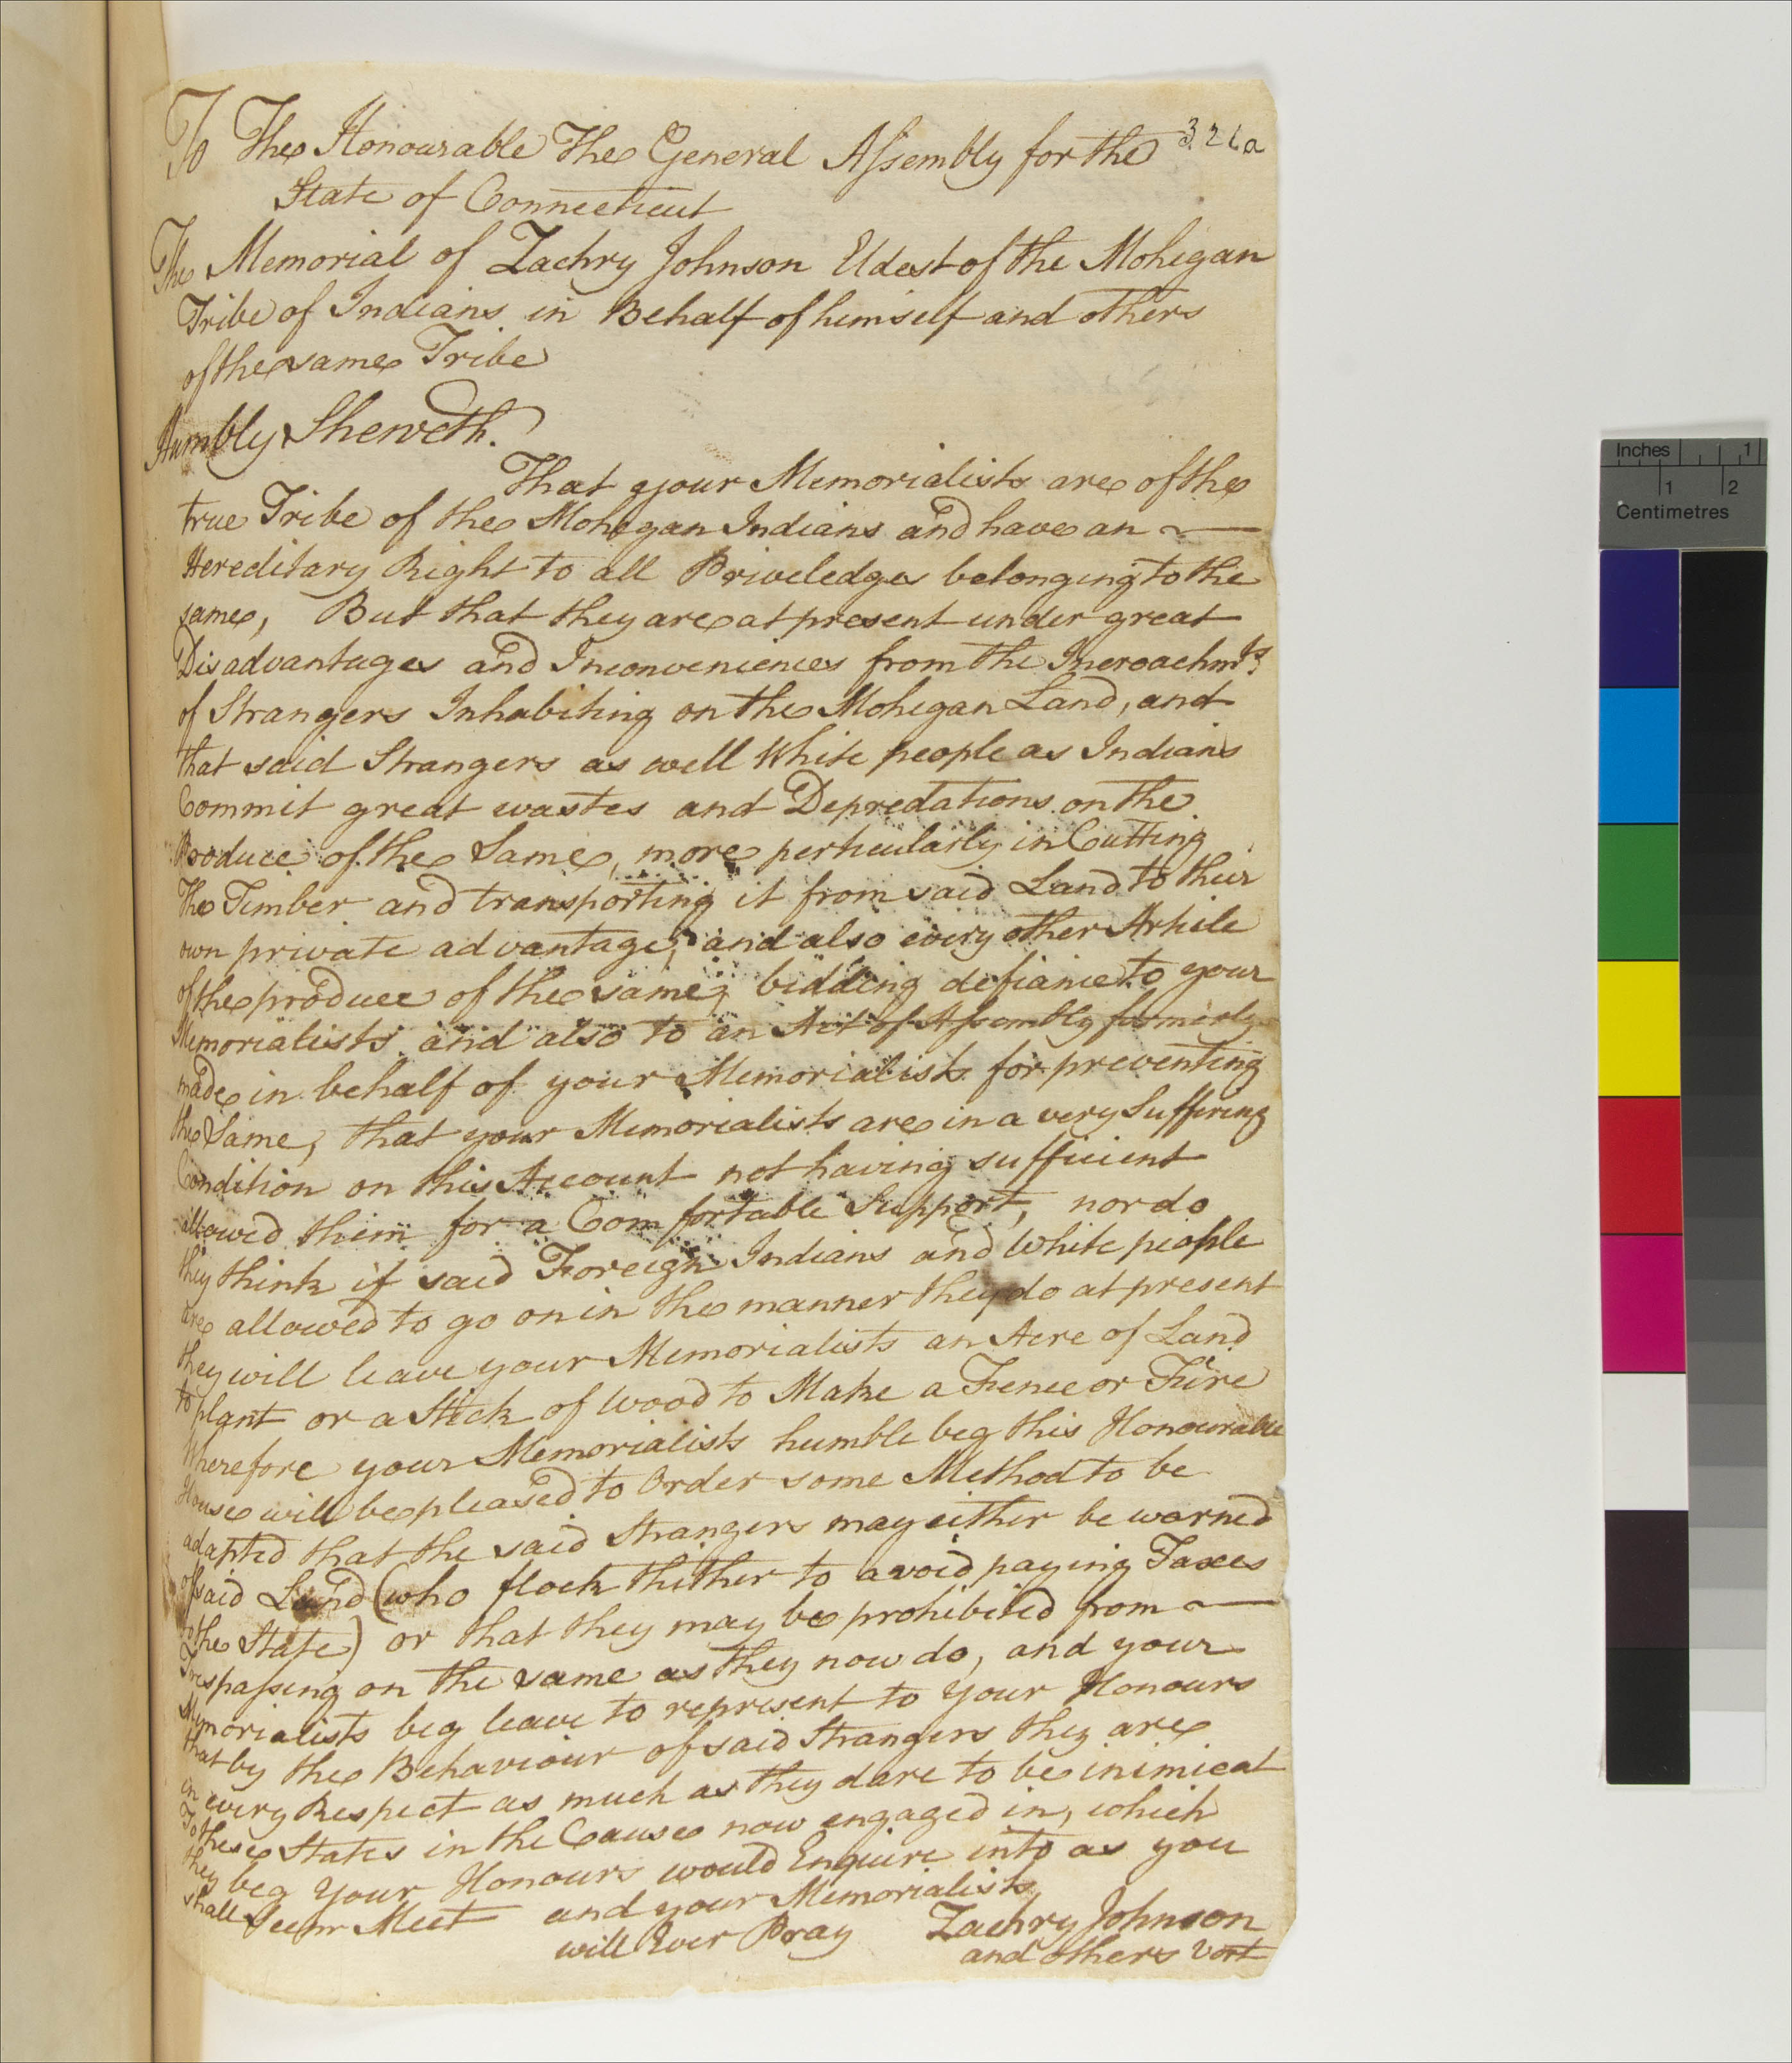 321a
To The Honourable The General Assembly for the
State of Connecticut
The Memorial of Zachry Johnson Eldest of the Mohegan
Tribe of Indians in Behalf of himself and others
of the same Tribe
Humbly Sheweth.
That your Memorialists are of the
true Tribe of the Mohegan Indians and have an
Hereditary Right to all Priveledges belonging to the
same, But that they are at present under great
Disadvantages and Inconveniences from the Incroachmts.
of Strangers Inhabiting on the Mohegan Land, and
that said Strangers as well White people as Indians
Commit great wastes and Depredations on the
Produce of the Same, more perticularly in Cutting
The Timber and transporting it from said Land to their
own private advantage, and also every other Article
of the produce of the same, bidding defiance to your
Memorialists and also to an Act of Assembly formerly
made in behalf of your Memorialists for preventing
the Same, that your Memorialists are in a very Suffering
Condition on this Account not having sufficient
allowed them for a Comfortable Support, nor do
they think if said Foreign Indians and White people
are allowed to go on in the manner they do at present
they will leave your Memorialists an Acre of Land
to plant or a Stick of Wood to Make a Fence or Fire
Wherefore your Memorialists humble beg this Honourable
House will be pleased to Order some Method to be
adapted that the said Strangers may either be warned
of said Land (who flock thither to avoid paying Taxes
to the State) or that they may be prohibited from
Trespassing on the same as they now do, and your
Memorialists beg leave to represent to your Honours
that by the Behaviour of said Strangers they are
in every Respect as much as they dare to be inimical
To these States in the Cause now engaged in, which
they beg your Honours would Enquire into as you
shall Seem Meet and your Memorialists
will Ever Pray Zachry Johnson
and others
Inches 1
1 2
Centimetres